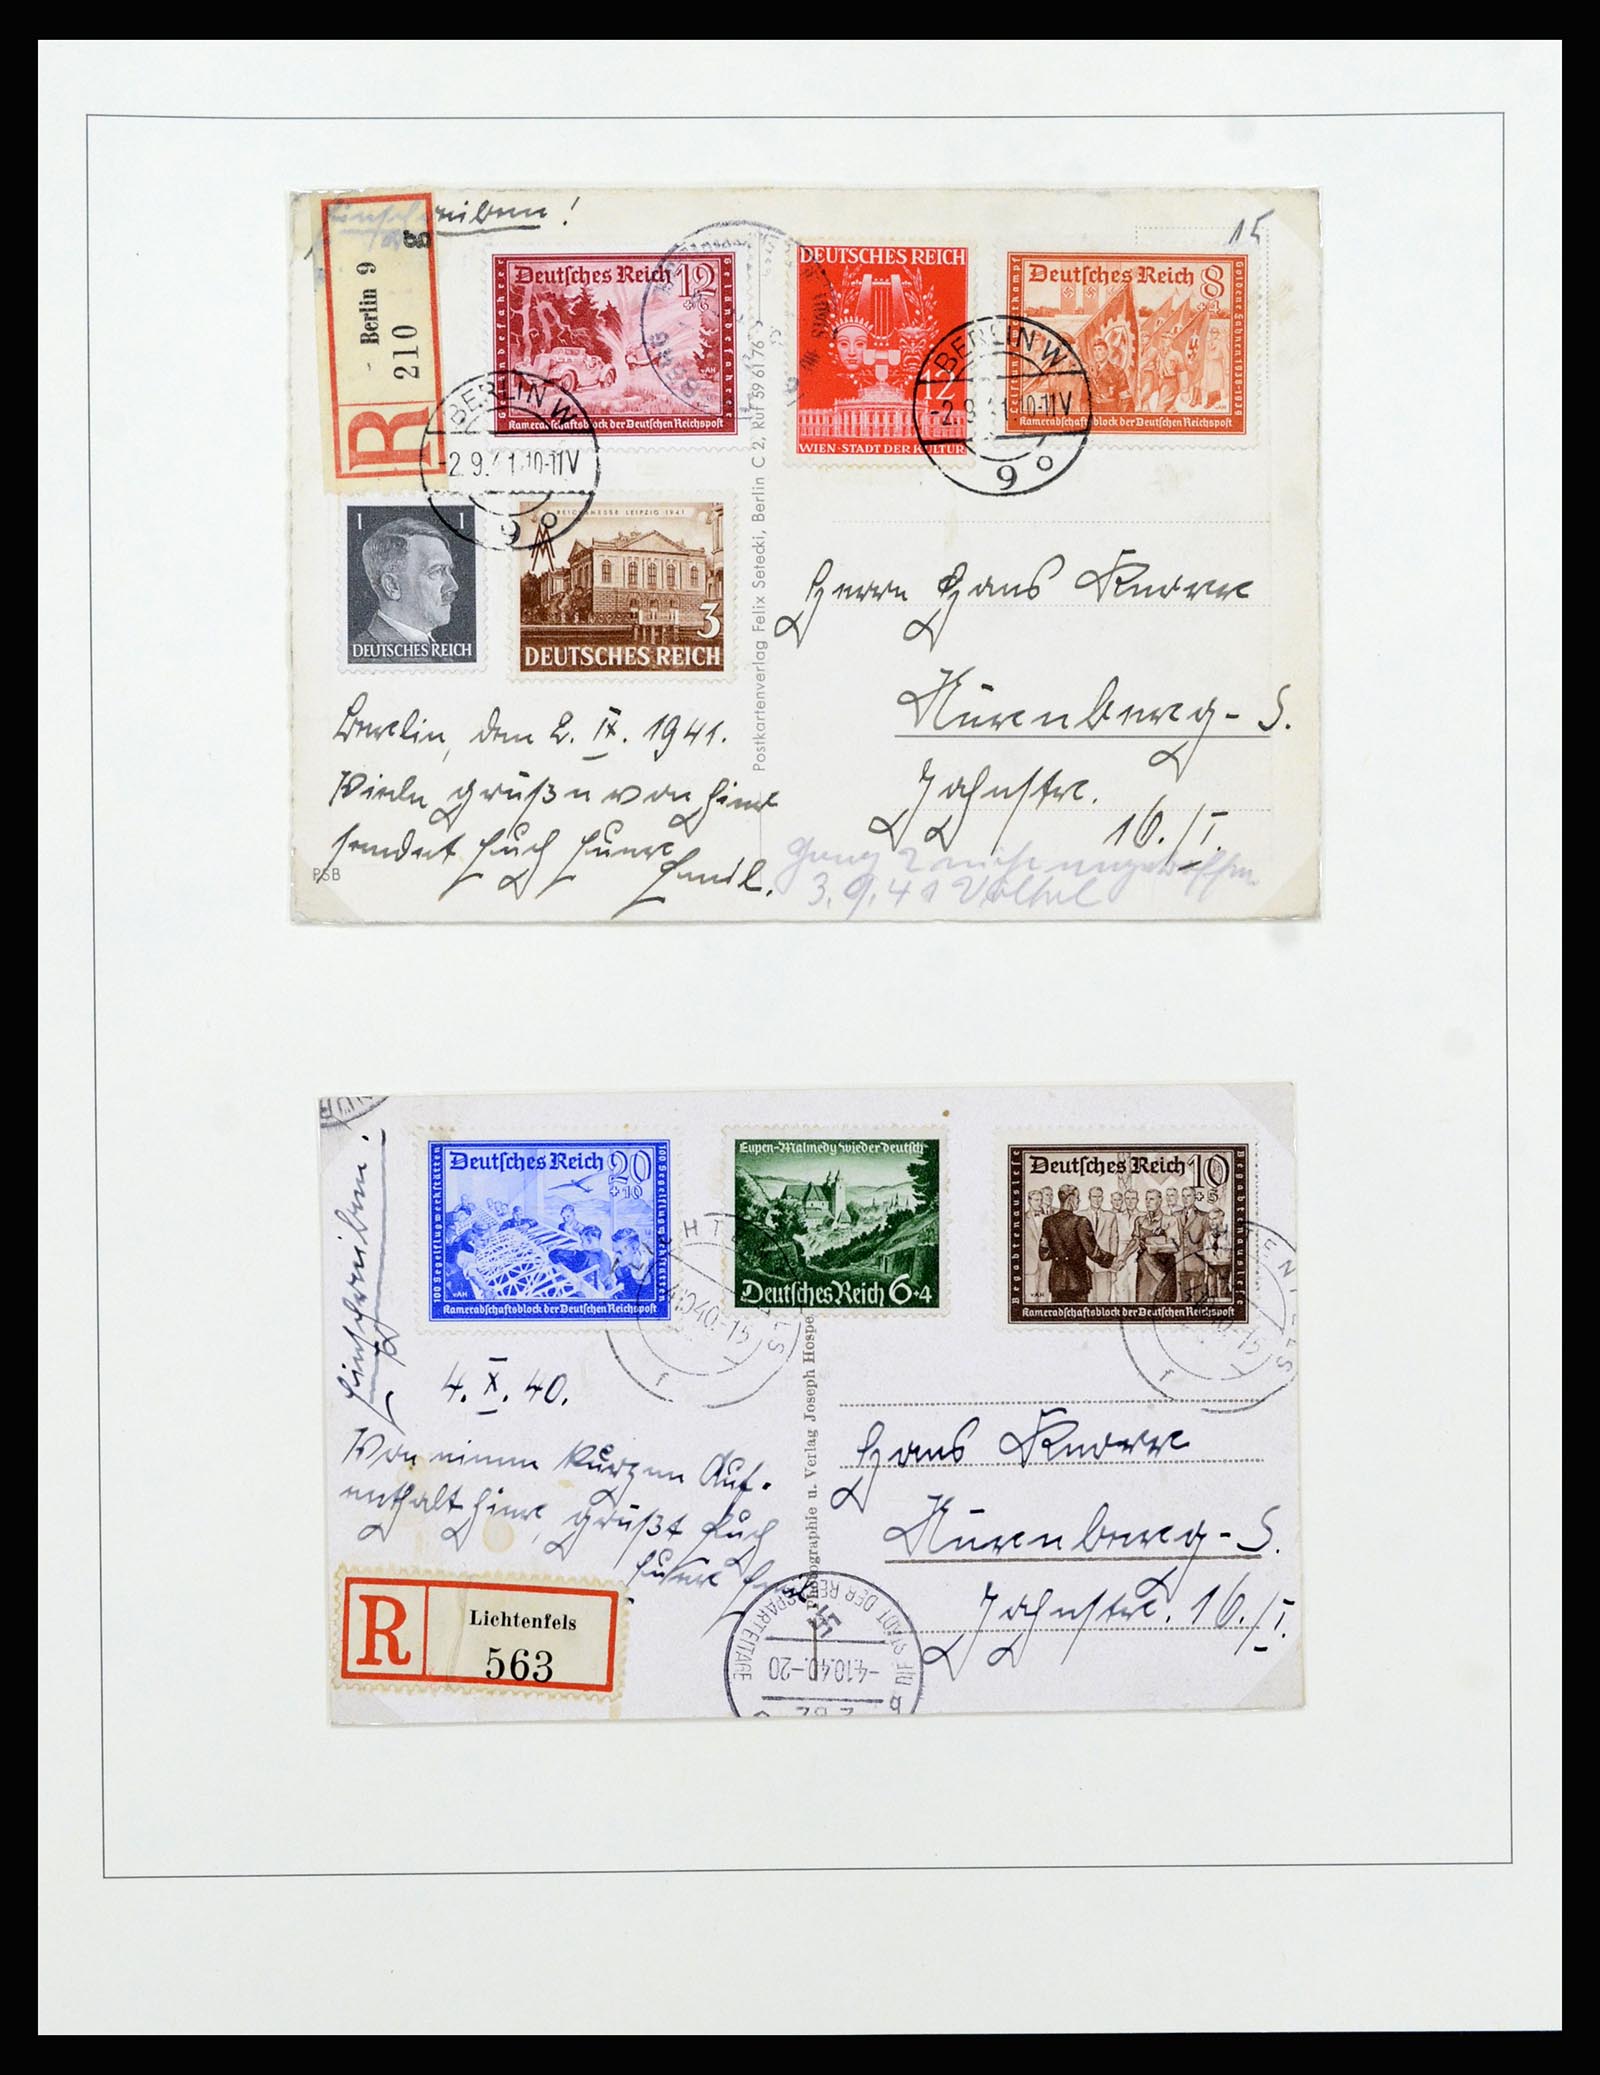 Einschreiben!
15
Berlin 9
210
g
R
Deutsches Reich 12
+6
Geländefahrer
Kameradschaftsblock der Deutschen Reichspost
DEUTSCHES REICH
12
WIEN·STADT DER KULTUR
Deutsches Reich 8
+4
Goldene Fahnen 1938-1939
Leistungskampf
Kameradschaftsblock der Deutschen Reichspost
BERLIN W
-2.9.41.10-11V
9 o
BERLIN W
-2.9.41.10-11V
9 o
1 1
DEUTSCHES REICH
REICHSMESSE LEIPZIG 1941
3
DEUTSCHES REICH
Postkartenverlag Felix Setecki, Berlin C 2, Ruf 59 61 76
Herrn Hans Knorr
Nürenberg-S.
Jahnstr.
16./I.
Berlin, den 2. IX. 1941.
Viele Grüße von hier
sendet Euch Euer
Emil.
PSB
Gang 2 nicht angetroffen
3.9.41
Einschreiben.
Deutsches Reich 20
+10
100 Segelflugwerkstätten
100 Segelflugwerkstätten
Kameradschaftsblock der Deutschen Reichspost
Eupen-Malmedy wieder deutsch
Deutsches Reich 6+4
Deutsches Reich 10
+5
Begabtenauslese
Begabtenauslese
Kameradschaftsblock der Deutschen Reichspost
4. X. 40.
Von einem kurzen Auf-
enthalt hier, grüßt Euch
Euer Emil.
Photographie u. Verlag Joseph Hospe
Hans Knorr
Nürenberg-S.
Jahnstr. 16./I.
R
Lichtenfels
563
-4.10.40.-20